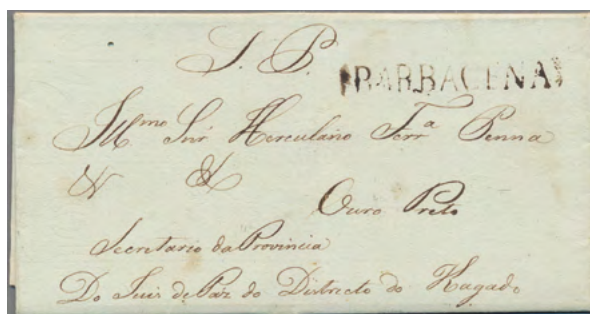 S. P.
BARBACENA
Illmo Snr Herculano Ferra Penna
& &
Ouro Preto
Secretario da Provincia
Do Juis de Paz do Districto do Kagado